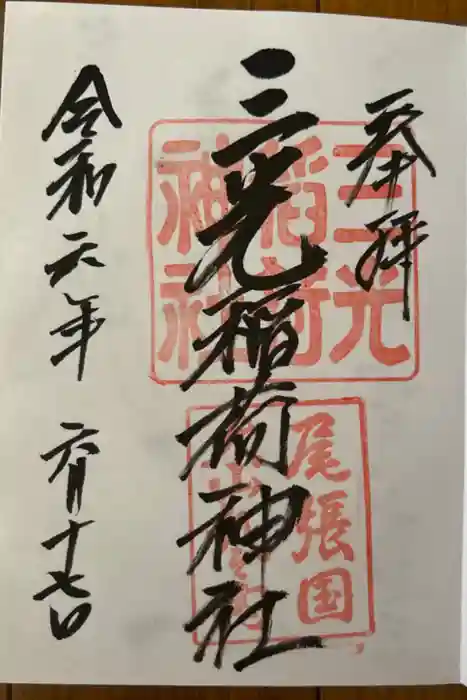 奉拝
三光
稲荷
神社
三光稲荷神社
尾張国
令和元年 六月十七日